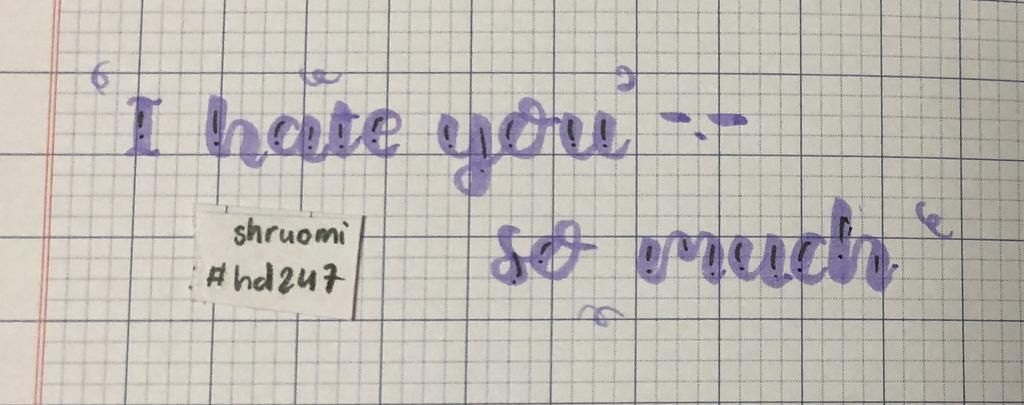 I hate you -.-
so much
shruomi
#hd247